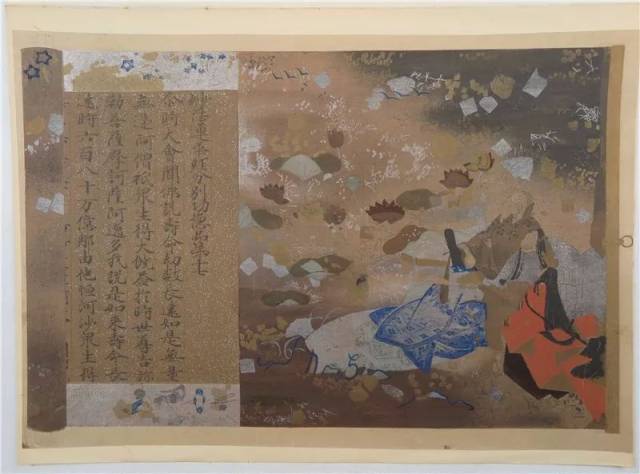 妙法蓮華經分別功德品第十七
尒時大會聞佛說壽命劫數長遠如是無量
無邊阿僧祇衆生得大饒益於時世尊告彌
勒菩薩摩訶薩阿逸多我說是如來壽命長
遠時六百八十万億那由他恒河沙衆生得